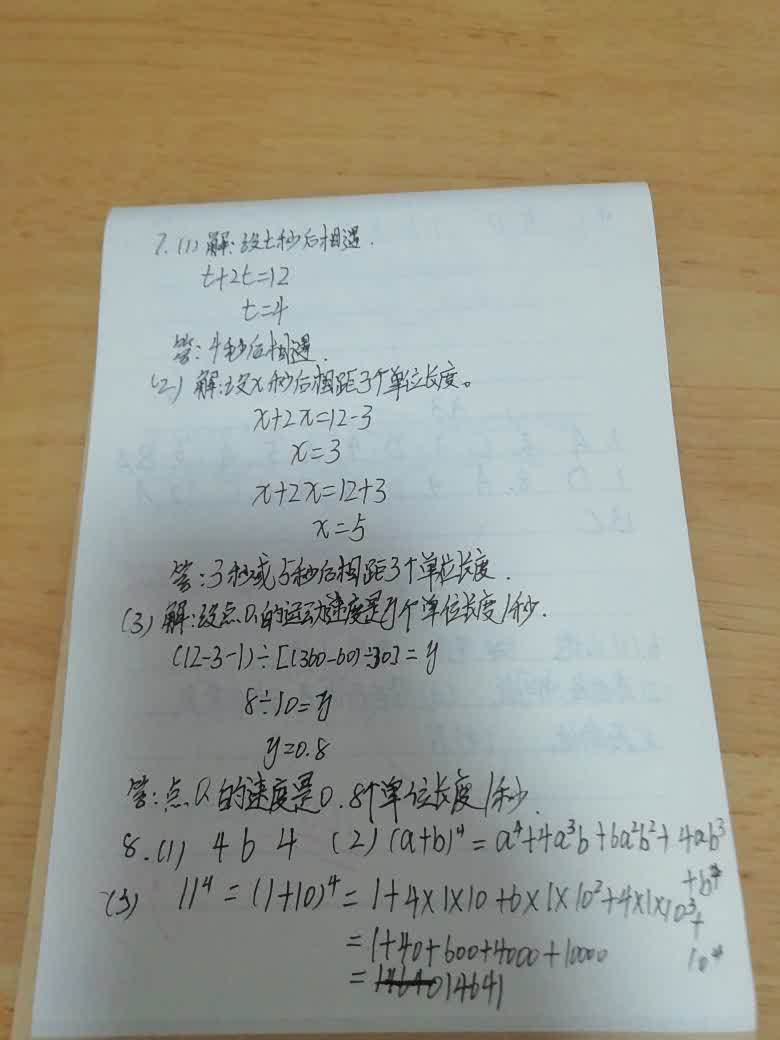 7.(1)解:设t秒后相遇.
t+2t=12
t=4
答:4秒后相遇.
(2)解:设x秒后相距3个单位长度。
x+2x=12-3
x=3
x+2x=12+3
x=5
答:3秒或5秒后相距3个单位长度.
(3)解:设点Q的运动速度是y个单位长度/秒.
(12-3-1)÷[(360-60)÷30]=y
8÷10=y
y=0.8
答:点Q的速度是0.8个单位长度/秒.
8.(1) 4 6 4 (2)(a+b)⁴=a⁴+4a³b+6a²b²+4ab³
+b⁴
(3) 11⁴=(1+10)⁴=1+4×1×10+6×1×10²+4×1×10³+
10⁴
=1+40+600+4000+10000
=14641